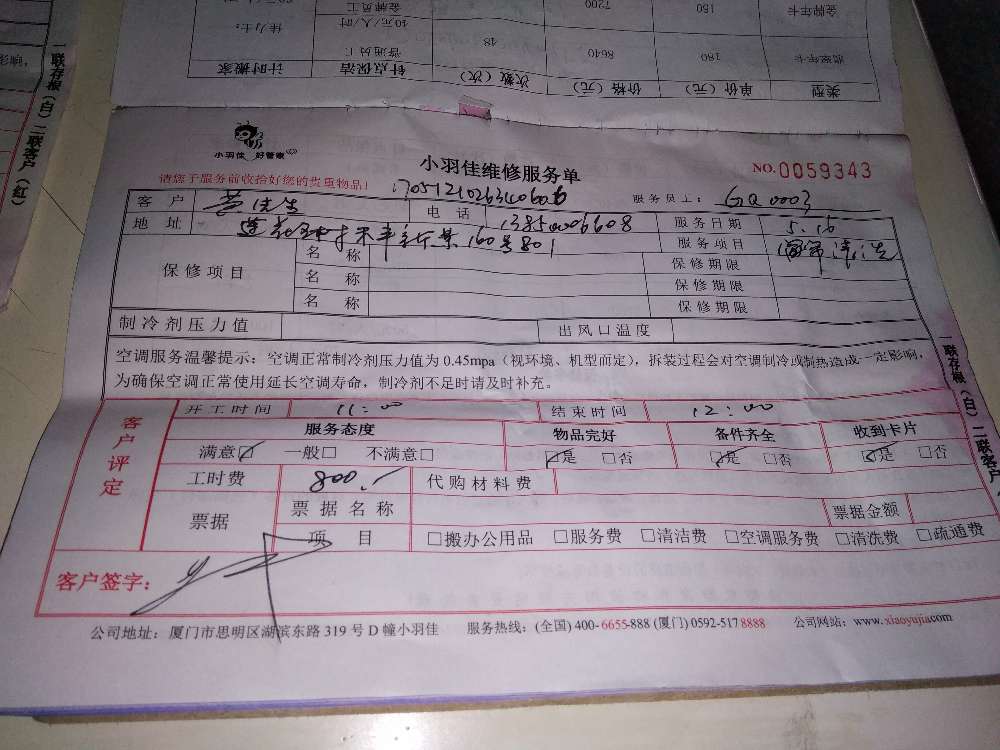 类型 单价（元） 价格（元） 次数（次） 针点保洁 计时搬家
180 8640 48 普通员工
金牌年卡 150 7200 金牌员工
40元/人/时
一联存根（白）二联客户（红）
小羽佳 好管家
小羽佳维修服务单
NO.0059343
请您于服务前收拾好您的贵重物品！
服务员工： GQ0003
客户 黄先生 电话 服务日期 5.16
地址 160号801 服务项目
保修项目 名称 保修期限
名称 保修期限
名称 保修期限
制冷剂压力值 出风口温度
空调服务温馨提示：空调正常制冷剂压力值为 0.45mpa（视环境、机型而定），拆装过程会对空调制冷或制热造成一定影响，
为确保空调正常使用延长空调寿命，制冷剂不足时请及时补充。
客户评定
开工时间 11：00 结束时间 12：00
服务态度 物品完好 备件齐全 收到卡片
满意☑ 一般□ 不满意□ ☑是 □否 ☑是 □否 ☑是 □否
工时费 800.- 代购材料费
票据 票据名称 票据金额
项目 □搬办公用品 □服务费 □清洁费 □空调服务费 □清洗费 □疏通费
客户签字：
公司地址：厦门市思明区湖滨东路 319 号 D 幢小羽佳 服务热线：(全国) 400-6655-888 (厦门) 0592-517 8888 公司网站：www.xiaoyujia.com
一联存根（白）二联客户